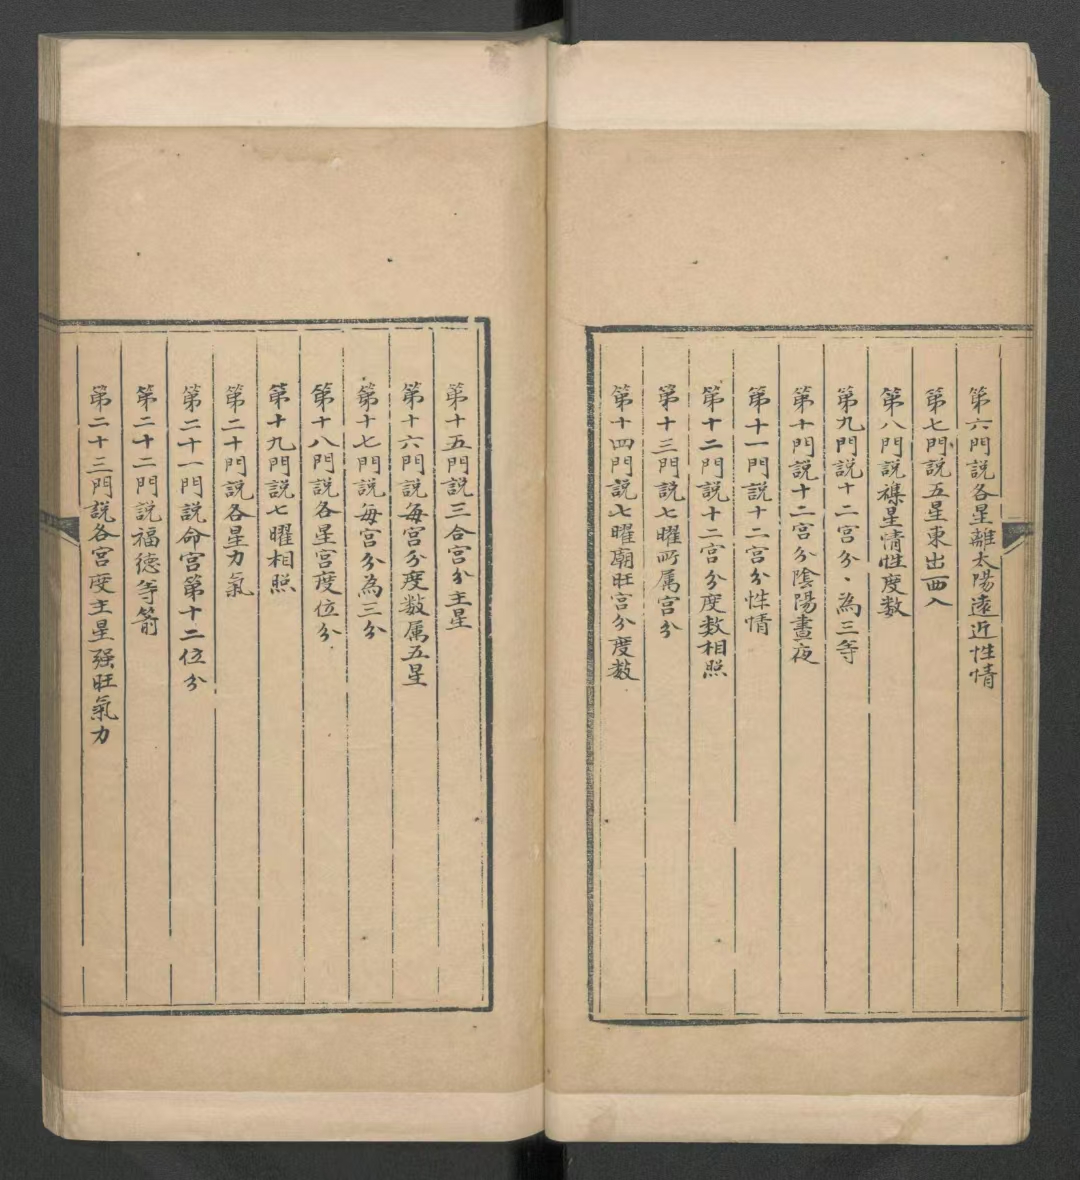 第六門説各星離太陽遠近性情
第七門説五星東出西入
第八門説襍星情性度数
第九門説十二宫分、為三等
第十門説十二宫分陰陽晝夜
第十一門説十二宫分性情
第十二門説十二宫分度数相照
第十三門説七曜所属宫分
第十四門説七曜廟旺宫分度数
第十五門説三合宫分主星
第十六門説每宫分度数属五星
第十七門説每宫分為三分
第十八門説各星宫度位分
第十九門説七曜相照
第二十門説各星力氣
第二十一門説命宫第十二位分
第二十二門説福德等箭
第二十三門説各宫度主星强旺氣力